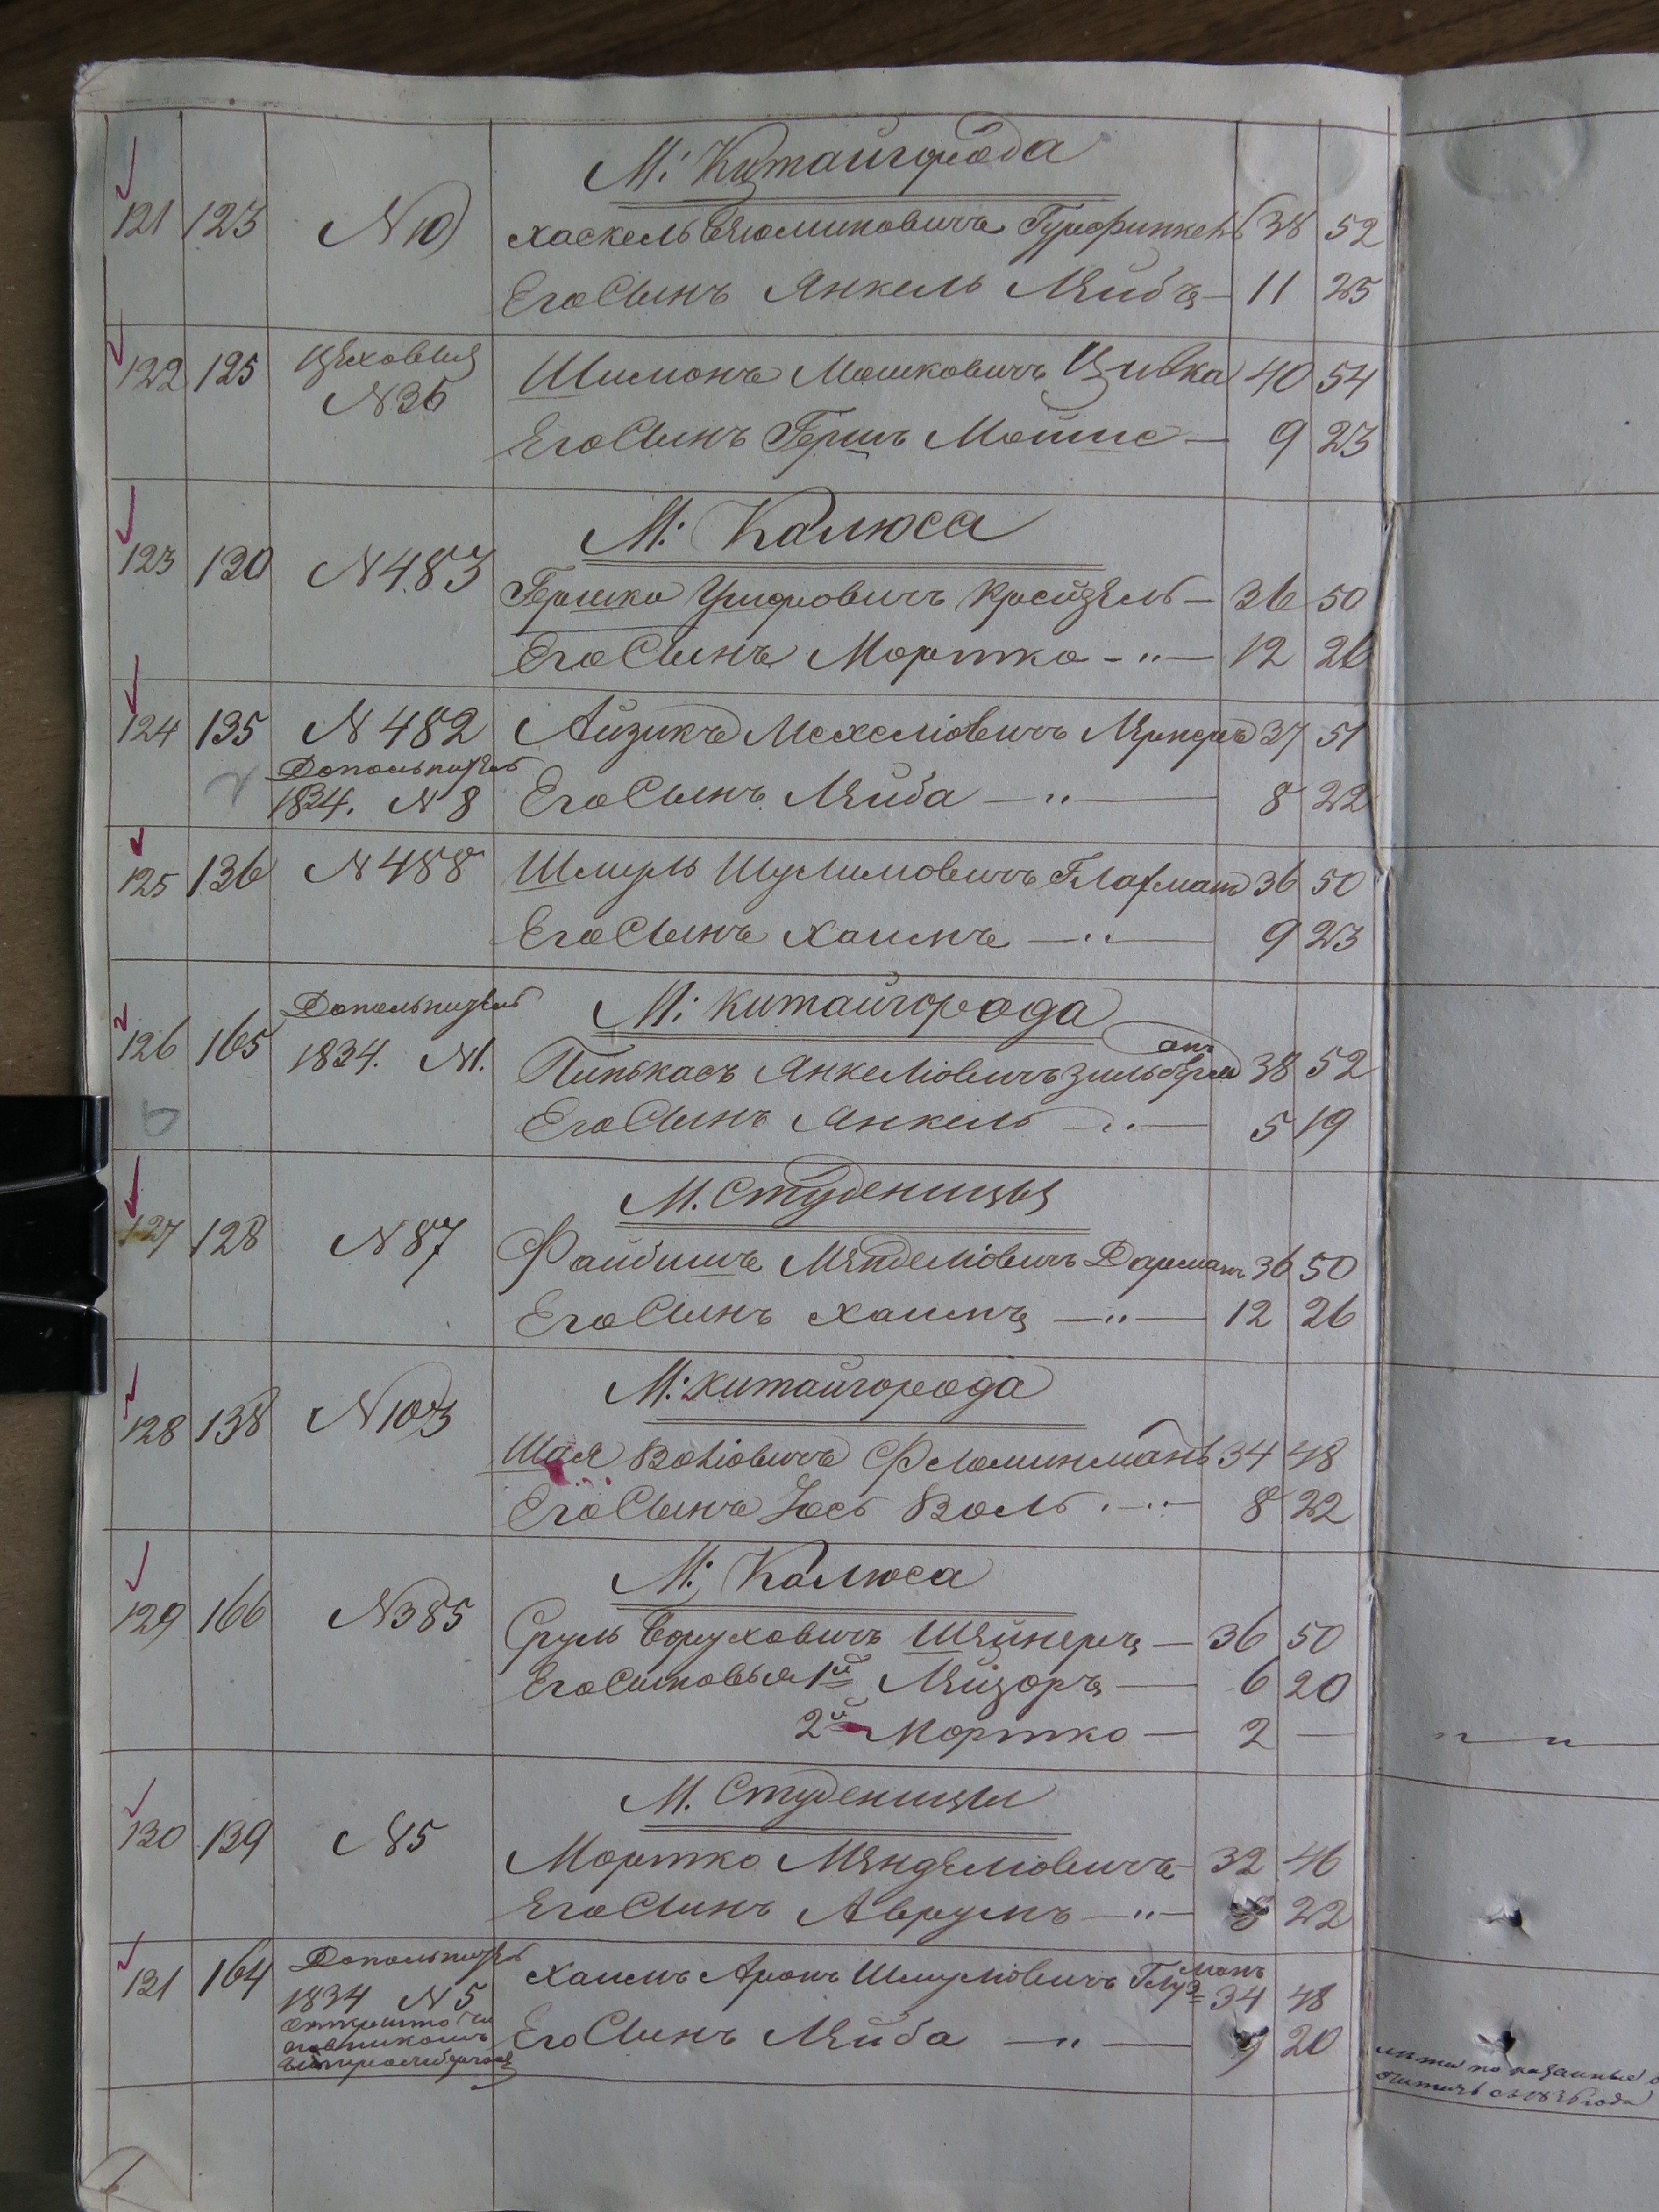 М: Китайгорода
121 123 N 10 Хаскель Беюминовичъ Гурфинкель 38 52
Его Сынъ Янкель Лейбъ — 11 25
122 125 Цеховыя N 36 Шимонъ Мошковичъ Цивка 40 54
Его Сынъ Гершъ Мойше — 9 23
М: Калюса
123 130 N 483 Гершко Крейзель — 36 50
Его Сынъ Мортко - " — 12 26
124 135 N 482 Айзикъ Мехеліовичъ Лернеръ 37 51
Дополнител
1834. N 8 Его Сынъ Лейба — " — 8 22
125 136 N 488 Шмуль Шулимовичъ 36 50
Его Сынъ Хаимъ — " — 9 23
Дополнител М: Китайгорода
126 165 1834. N 1. Пинькасъ Янкеліовичъ Зильберманъ 38 52
Его Сынъ Янкель — " — 5 19
М. Студеницы
127 128 N 87 Файбишъ Менделіовичъ Дарманъ 36 50
Его Сынъ Хаимъ — " — 12 26
М: Китайгорода
128 138 N 103 Шая Воліовичъ Флюминманъ 34 48
Его Сынъ Іось Воль - " — 8 22
М: Калюса
129 166 N 385 Сруль Боруховичъ Шейнеръ — 36 50
Его Сыновья 1й Лейзоръ — 6 20
2й Мортко — 2 —
М. Студеницы
130 139 N 85 Мортко Менделіовичъ 32 46
Его Сынъ Аврумъ — " — 8 22
131 164 Дополнител Хаимъ Аронъ Шмуліовичъ Глузманъ 34 48
1834 N 5
Его Сынъ Лейба — " — 20